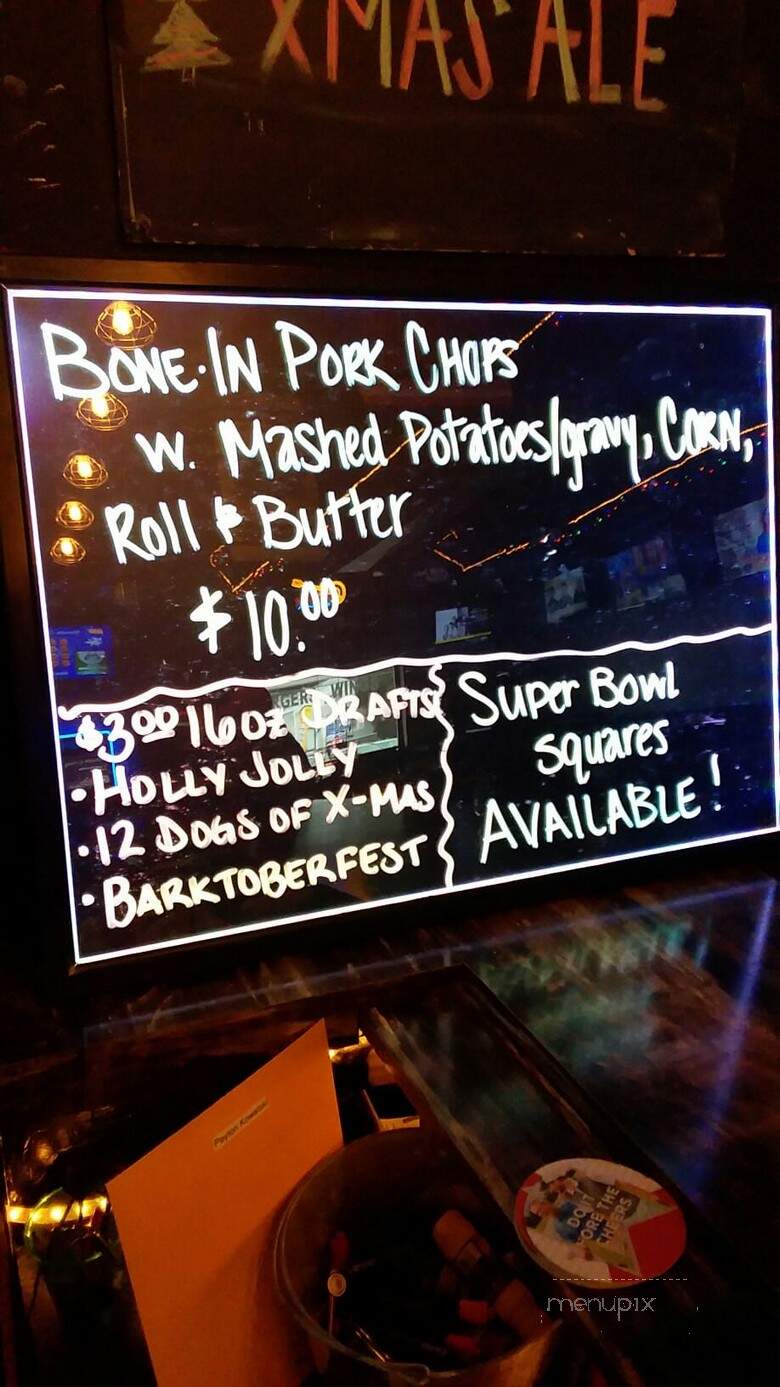 XMAS ALE
BONE-IN PORK CHOPS
W. Mashed Potatoes/gravy, CORN,
Roll & Butter
$10.00
$3.00 16oz DRAFTS
• HOLLY JOLLY
• 12 DOGS OF X-MAS
• BARKTOBERFEST
SUPER BOWL
SQUARES
AVAILABLE!
menupix